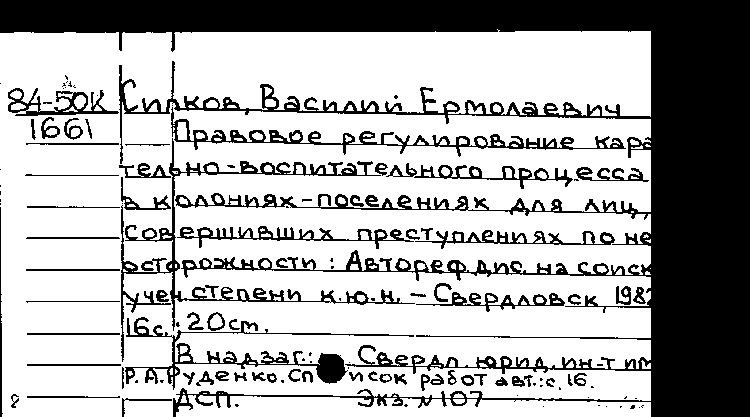 84-50К Силков, Василий Ермолаевич
1661
Правовое регулирование кара
тельно-воспитательного процесса
в колониях-поселениях для лиц,
совершивших преступлениях по не
осторожности : Автореф.дис. на соиск
учен.степени к.ю.н. – Свердловск, 1982
16с.; 20cm.
В надзаг.: Свердл. юрид. ин-т им
Р.А.Руденко. Список работ авт.: с.16.
ДСП. Экз. №107